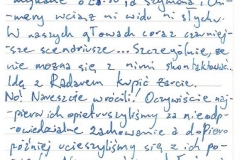 o Szymona i Oni-
mery wciąż ni widu ni słychu.
W naszych głowach coraz czarniej-
sze scenariusze... Szczególnie, że
nie można się z nimi skontaktować.
Idę z Radarem kupić żarcie.
No! Nareszcie wrócili! Oczywiście naj-
pierw ich opieturszyliśmy za nieodp-
owiedzialne zachowanie a dopiero
później ucieszyliśmy się z ich po-